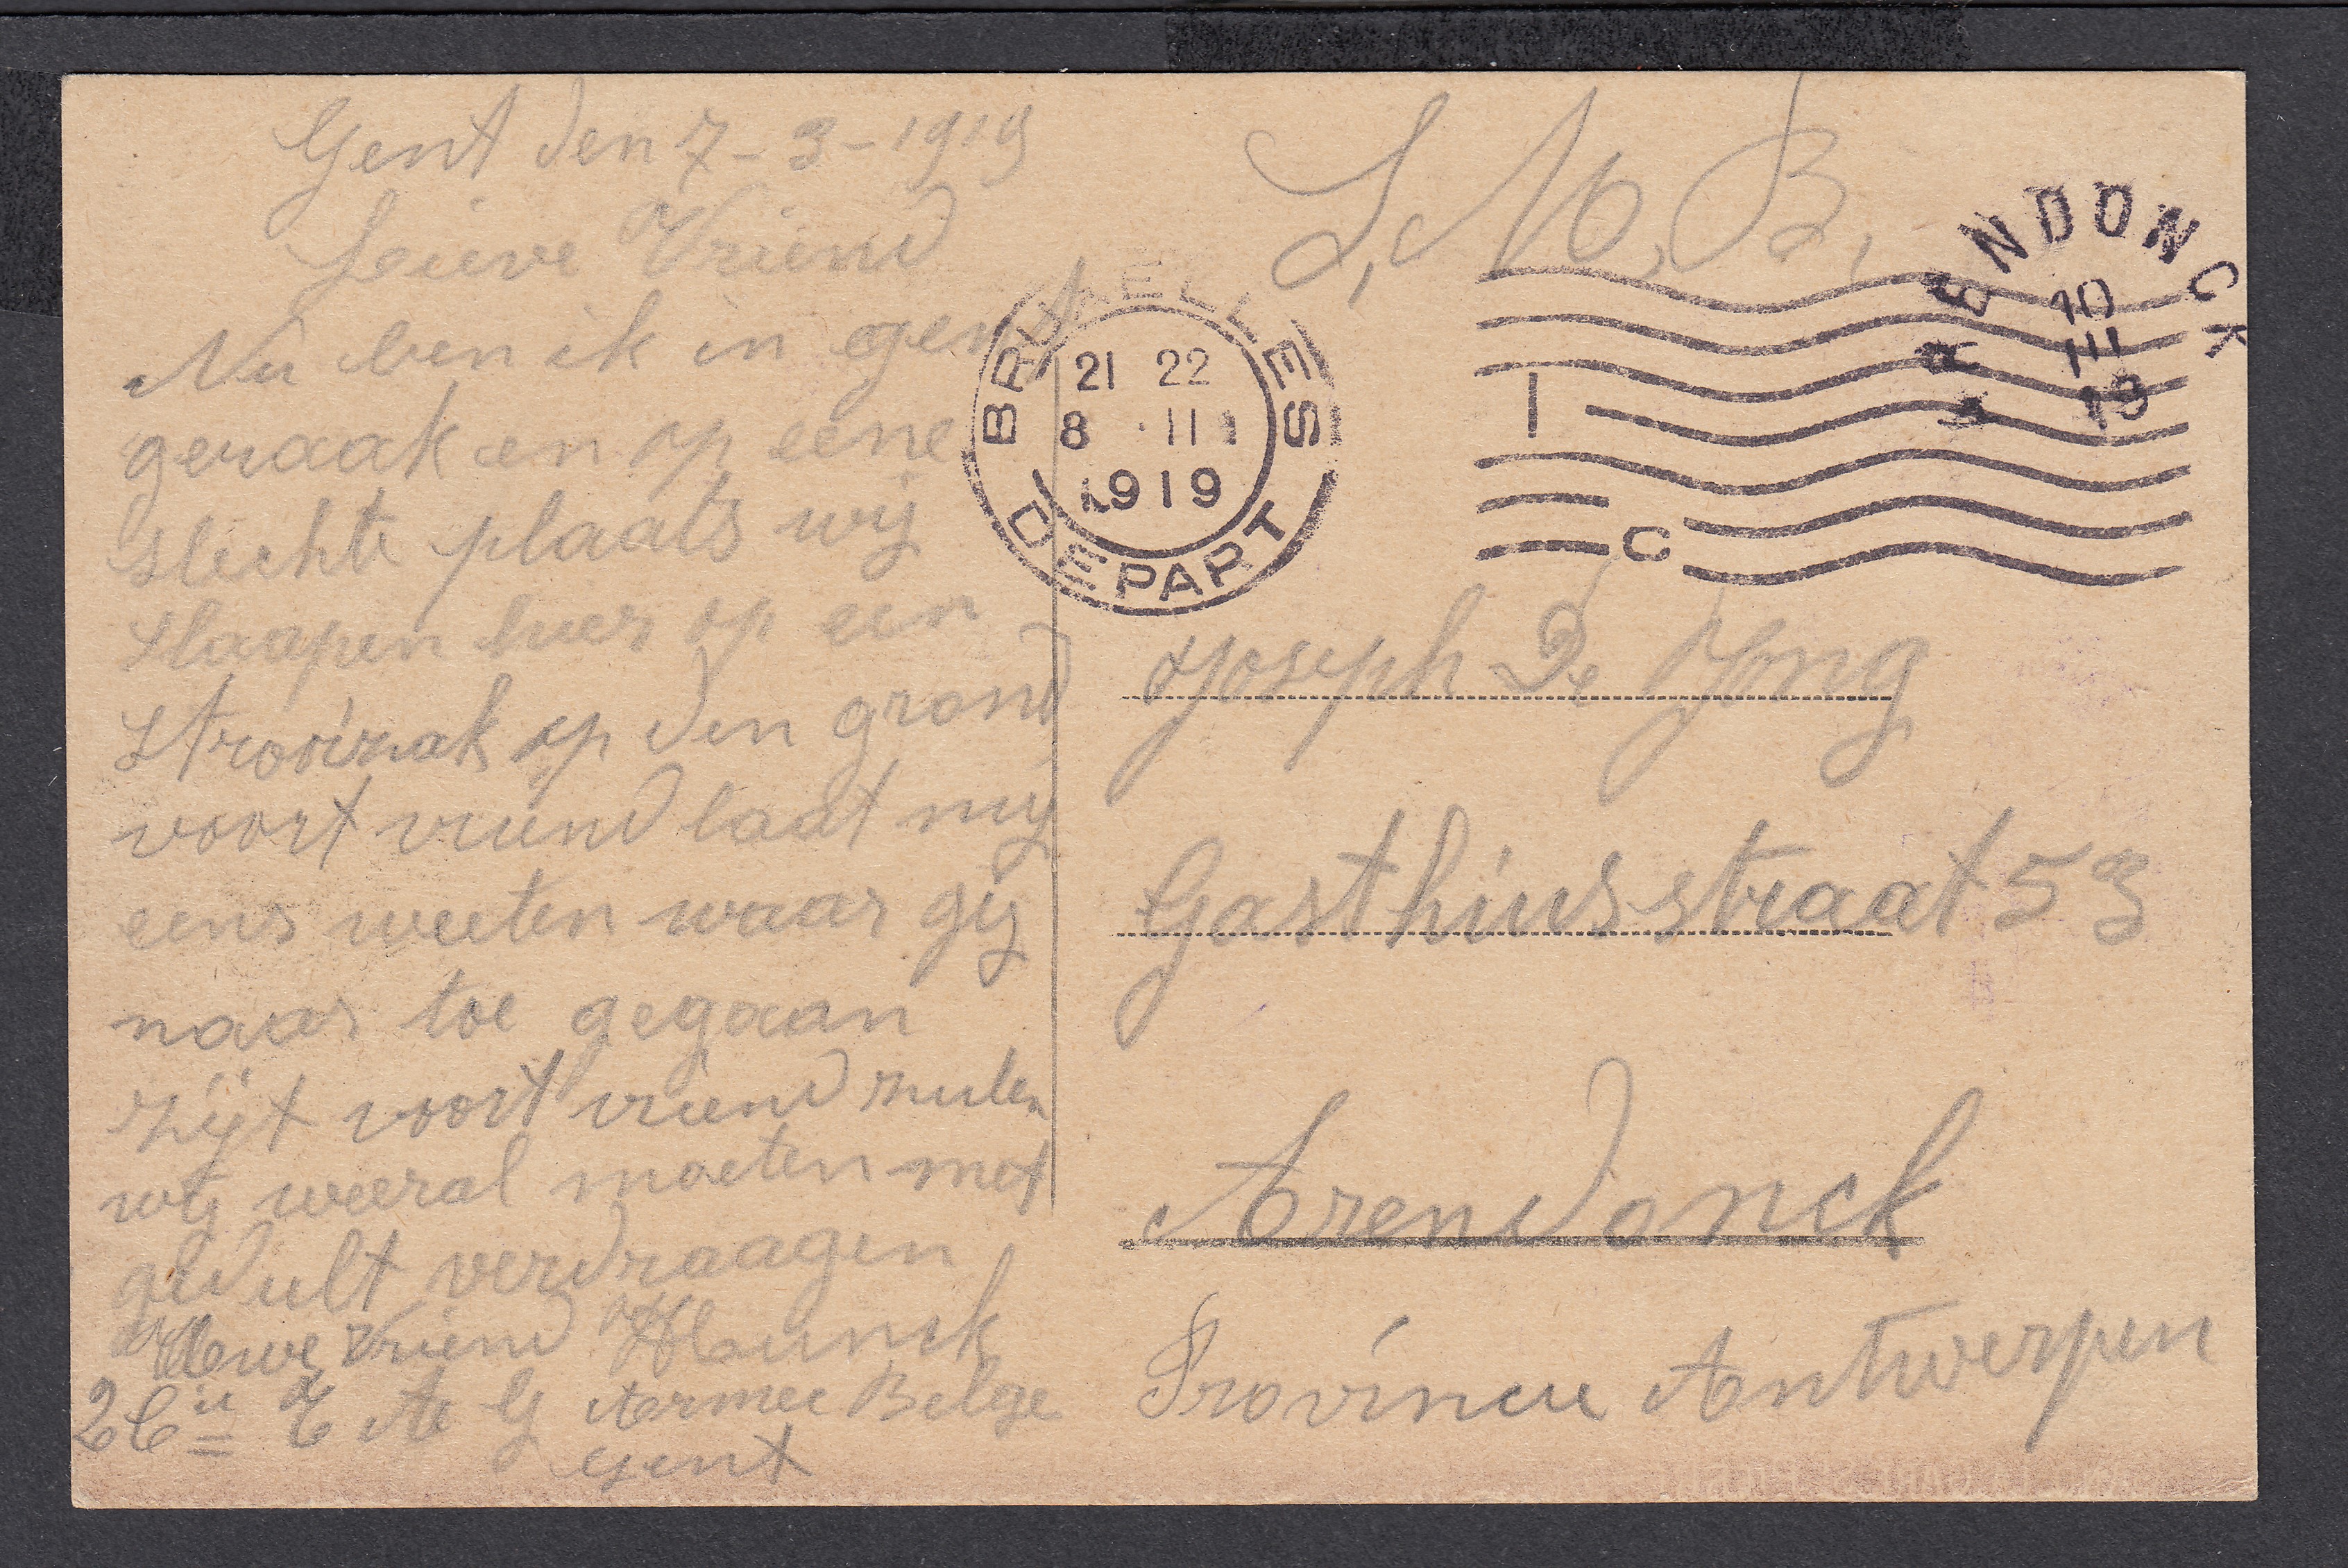 Gent den 7-3-1919
Lieve Vriend
Nu ben ik in gent
geraak en op eene
slechte plaats wij
slaapen hier op een
strooizak op den grond
voort vriend laat mij
eens weeten waar gij
naar toe gegaan
zijt voort vriend zulen
wij weeral moeten met
gedult verdraagen
Uwe Vriend
2 Cie Armee Belge
gent
S.M.B.
BRUXELLES
21 22
8 III
1919
DEPART
I C
ARENDONCK
10
III
19
Joseph De Jong
Gasthiusstraat 53
Arendonck
Provincie Antwerpen